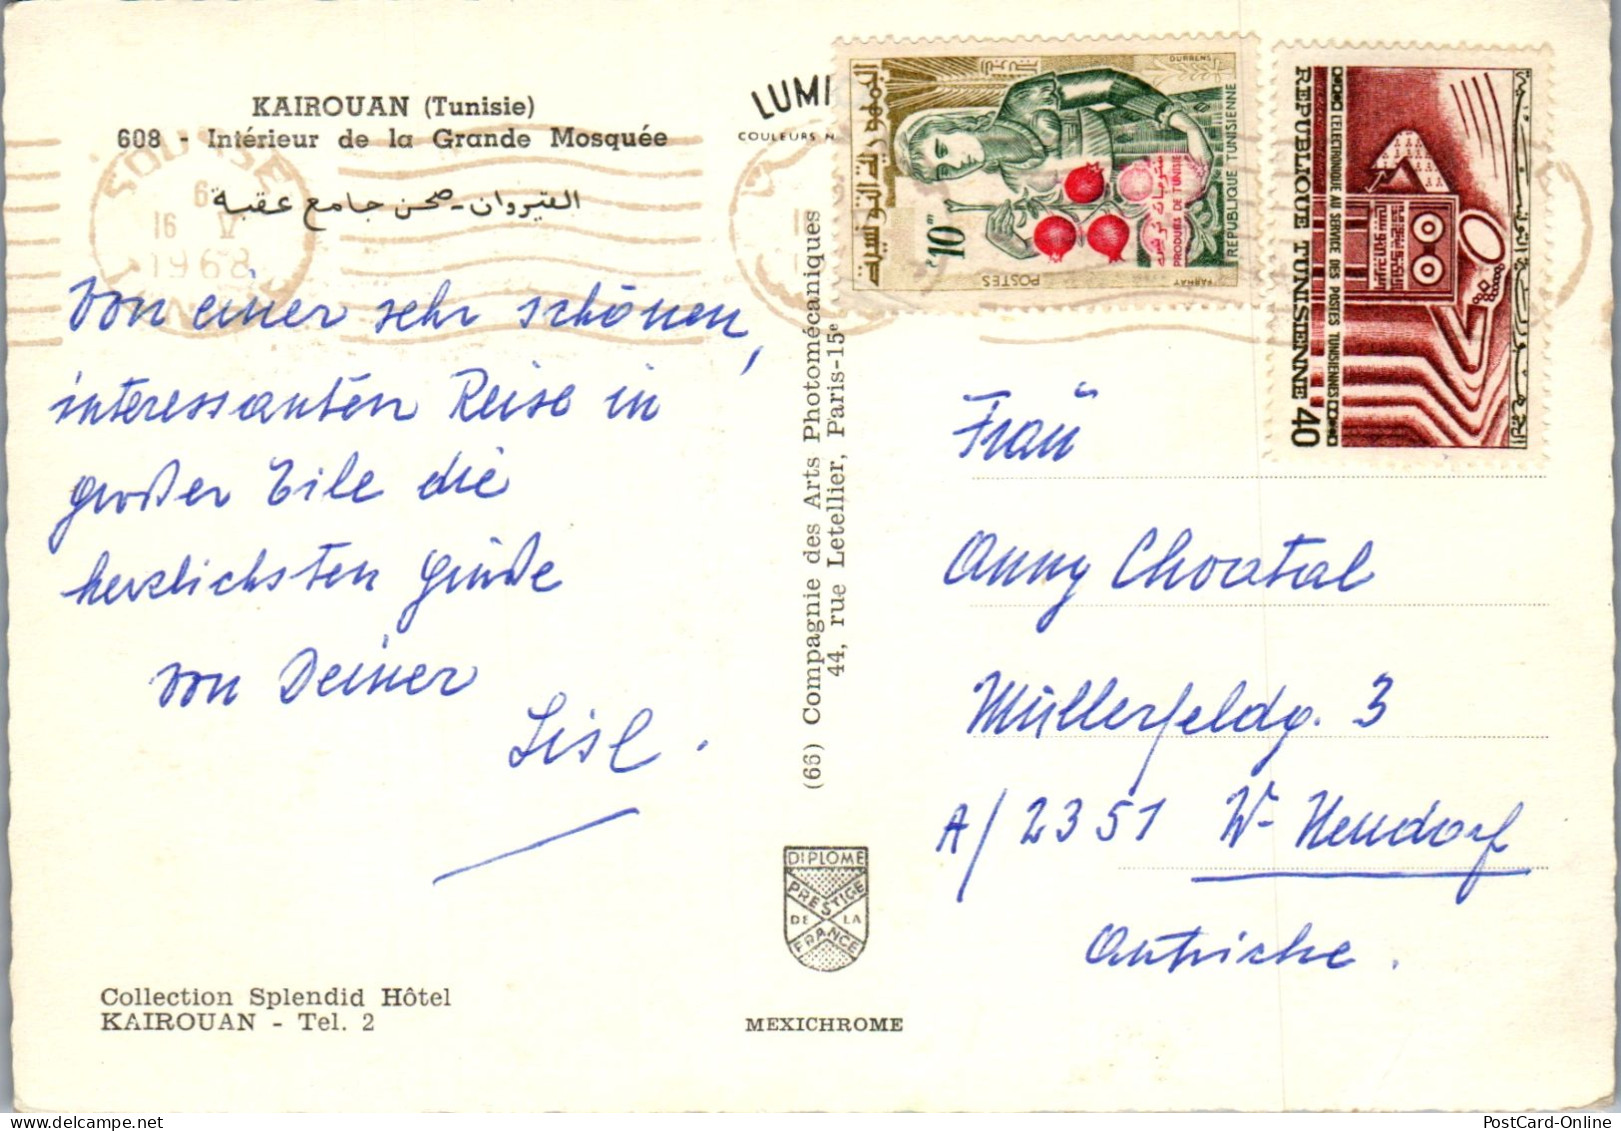 KAIROUAN (Tunisie)
608 - Intérieur de la Grande Mosquée
القيروان - صحن جامع عقبة
SOUSSE
16 V
1968
Von einer sehr schönen,
interessanten Reise in
großer Eile die
herzlichsten Grüße
von Deiner
Lisl.
Collection Splendid Hôtel
KAIROUAN - Tel. 2
LUMI
COULEURS N
(66) Compagnie des Arts Photomécaniques
44, rue Letellier, Paris-15e
DIPLOME
PRESTIGE
DE LA
FRANCE
MEXICHROME
الجمهورية التونسية
DURRENS
REPUBLIQUE TUNISIENNE
منتوجات تونس
PRODUITS DE TUNISIE
10m
POSTES
FARHAT
L'ELECTRONIQUE AU SERVICE DES POSTES TUNISIENNES
REPUBLIQUE TUNISIENNE 40
Frau
Anny Choatal
Müllerfeldg. 3
A/2351 W-Neudorf
Autriche.
PostCard-Online